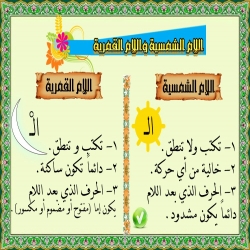 اللام الشمسية واللام القمرية
اللام الشمسية
الـ
١- تكتب ولا تنطق.
٢- خالية من أي حركة.
٣- الحرف الذي بعد اللام
دائماً يكون مشدود.
اللام القمرية
الْـ
١- تكتب و تنطق.
٢- دائماً تكون ساكنة.
٣- الحرف الذي بعد اللام
يكون إما (مفتوح أو مضموم أو مكسور)